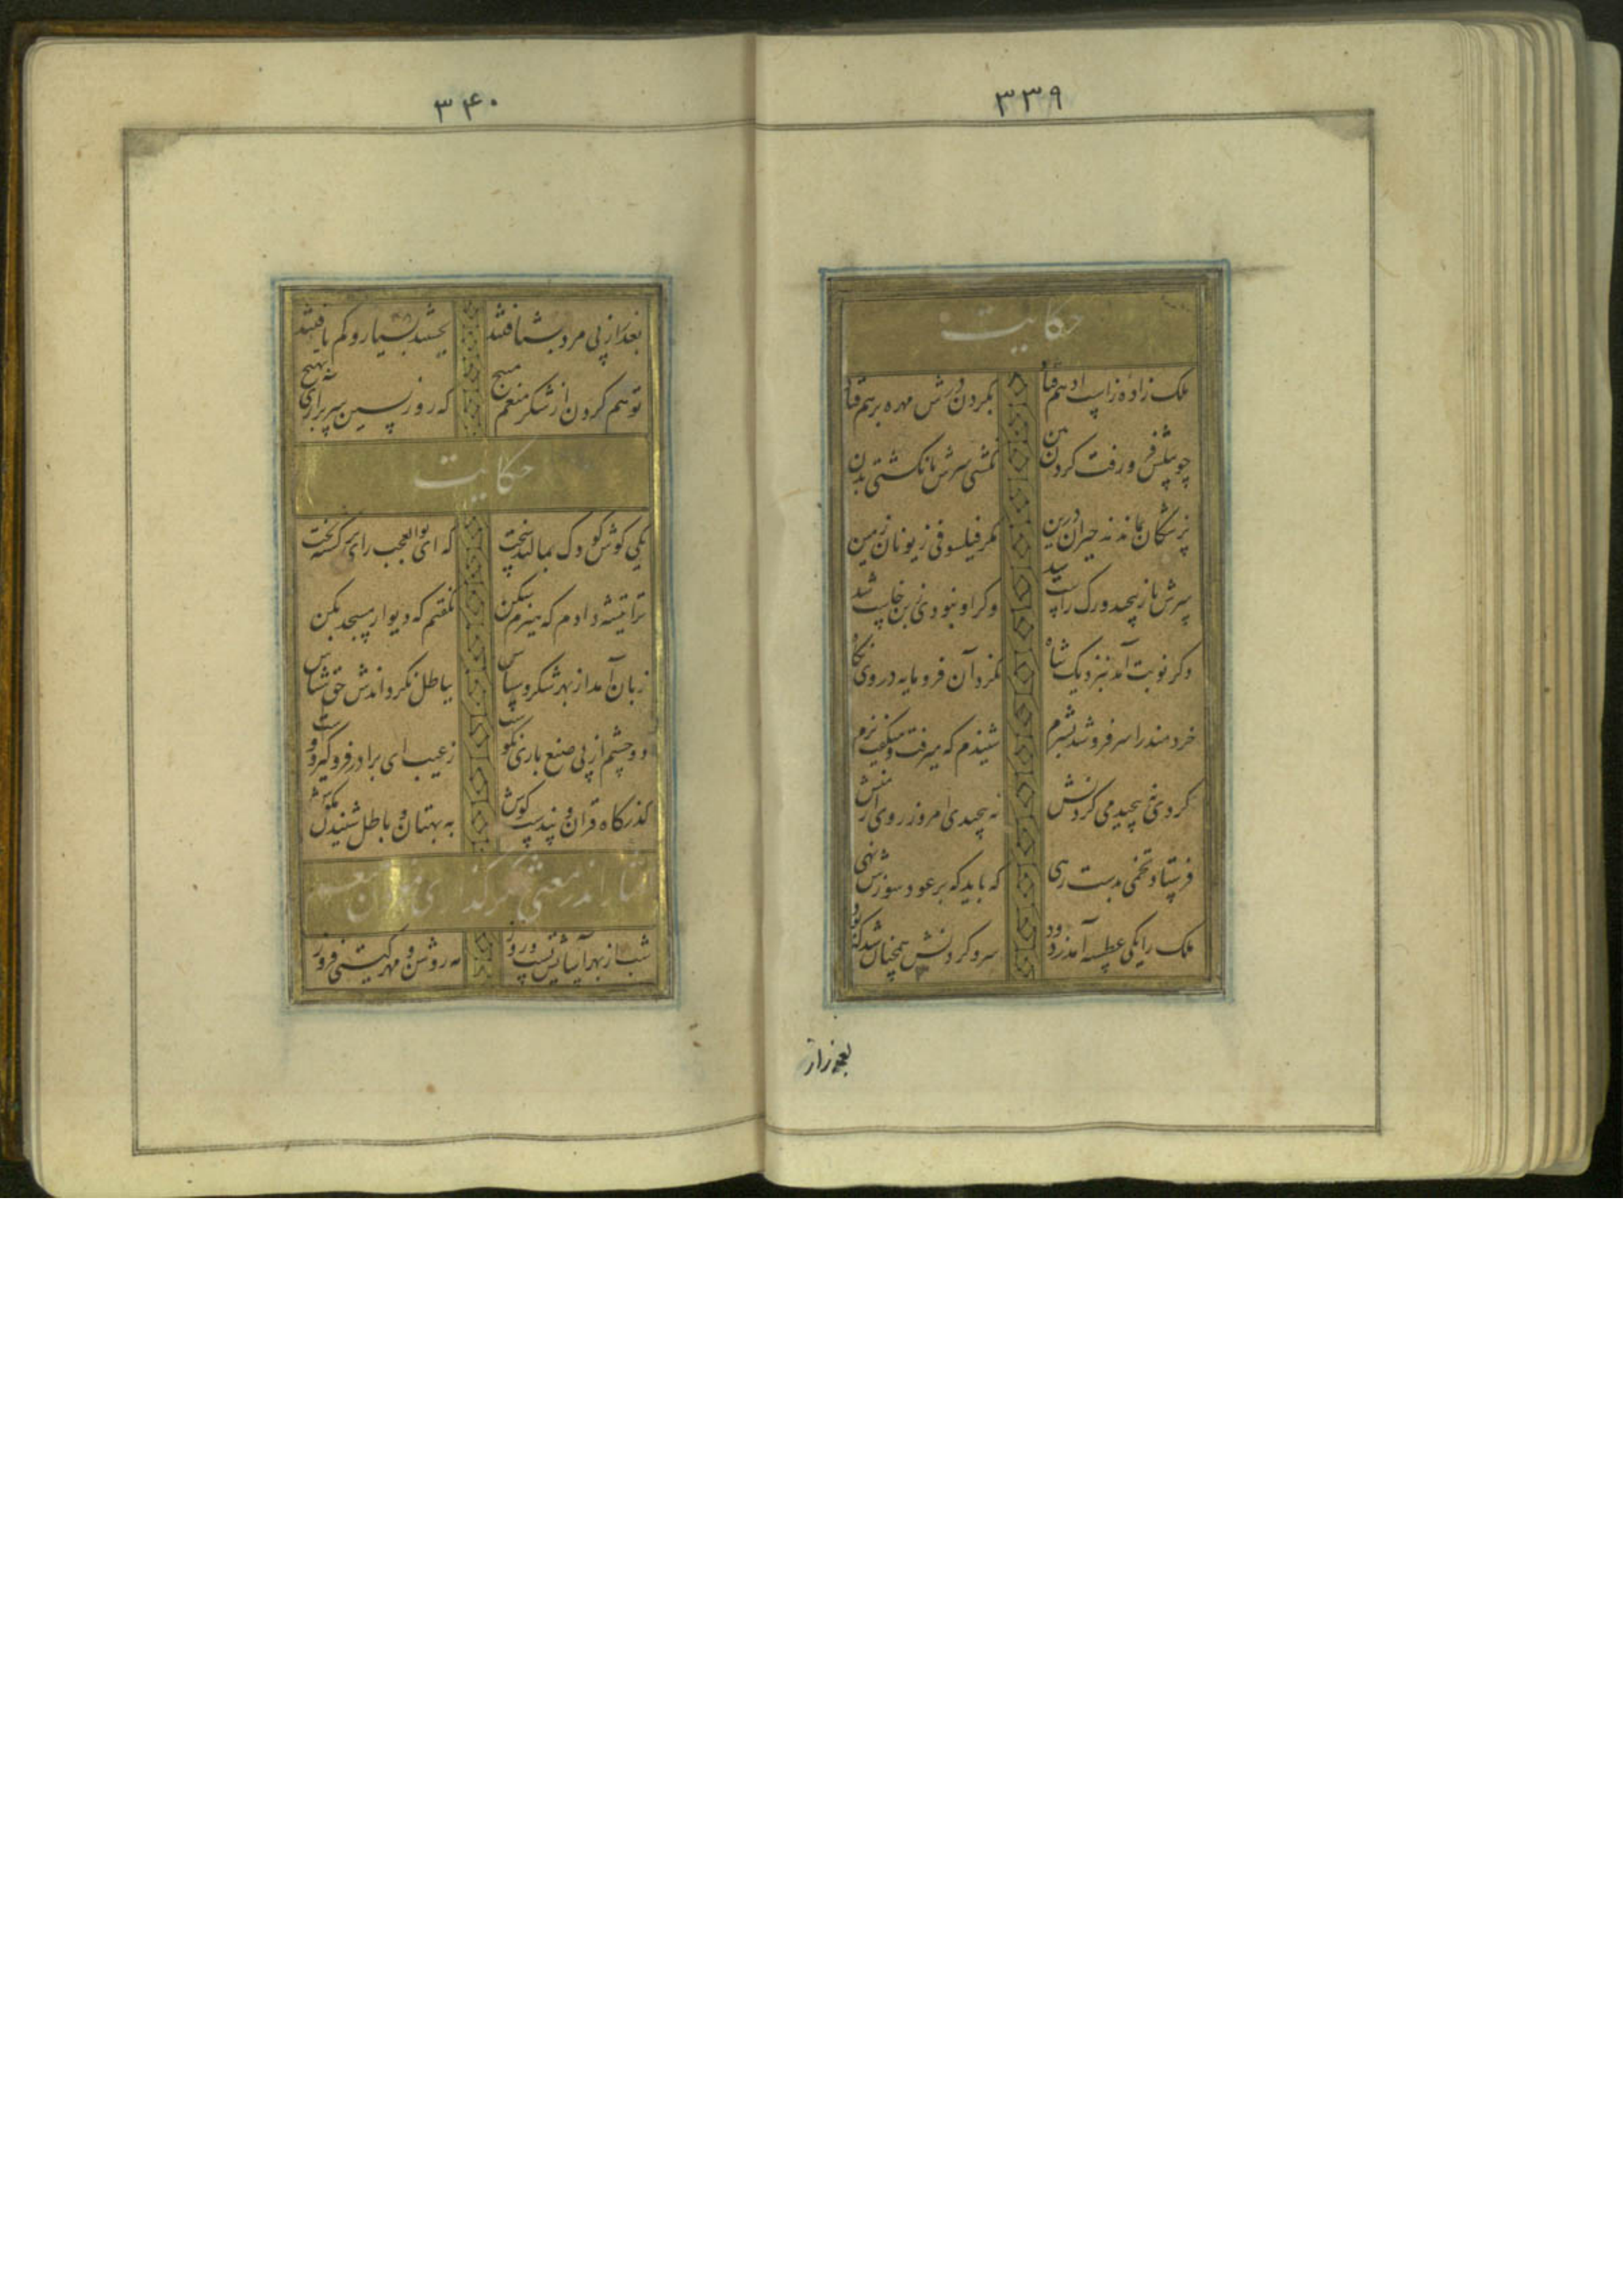 ۳۳۹
حکایت
ملک زاده زاسپ ادهم فتاد بگردن درش مهره برهم فتاد
چو پیلش فرو رفت گردن بتن نگشتی سرش تا نگشتی بدن
پزشکان بماندند حیران درین مگر فیلسوفی ز یونان زمین
سرش باز پیچید و رگ راست شد وگر او نبودی زمن خاست شد
دگر نوبت آمد بنزدیک شاه نکرد آن فرومایه در وی نگاه
خردمند را سر فرو شد بشرم شنیدم که میرفت و میگفت نرم
گر دی نه پیچیدمی گردنش نه پیچیدی امروز روی از منش
فرستاد تخمی بدست رهی که باید که بر عود سوزش نهی
ملک را یکی عطسه آمد ز دود سر و گردنش همچنان شد که بود
بعذر از
۳۴۰
بعذر از پی مرد بشتافتند بجستند بسیار و کم یافتند
تو هم گردن از شکر منعم مپیچ که روز پسین سر برآری بهیچ
حکایت
یکی گوش کودک بمالید سخت که ای بوالعجب رای برگشته بخت
ترا تیشه دادم که هیزم شکن نگفتم که دیوار مسجد بکن
زبان آمد از بهر شکر و سپاس بباطل نگرداندش حق شناس
دو چشم از پی صنع باری نکوست ز عیب ای برادر فرو گیر و دوست
گذرگاه قران و پندست گوش به بهتان و باطل شنیدن مکوش
گفتار اندر معنی شکر گذاری
شب از بهر آسایش تست و روز مه روشن و مهر گیتی فروز